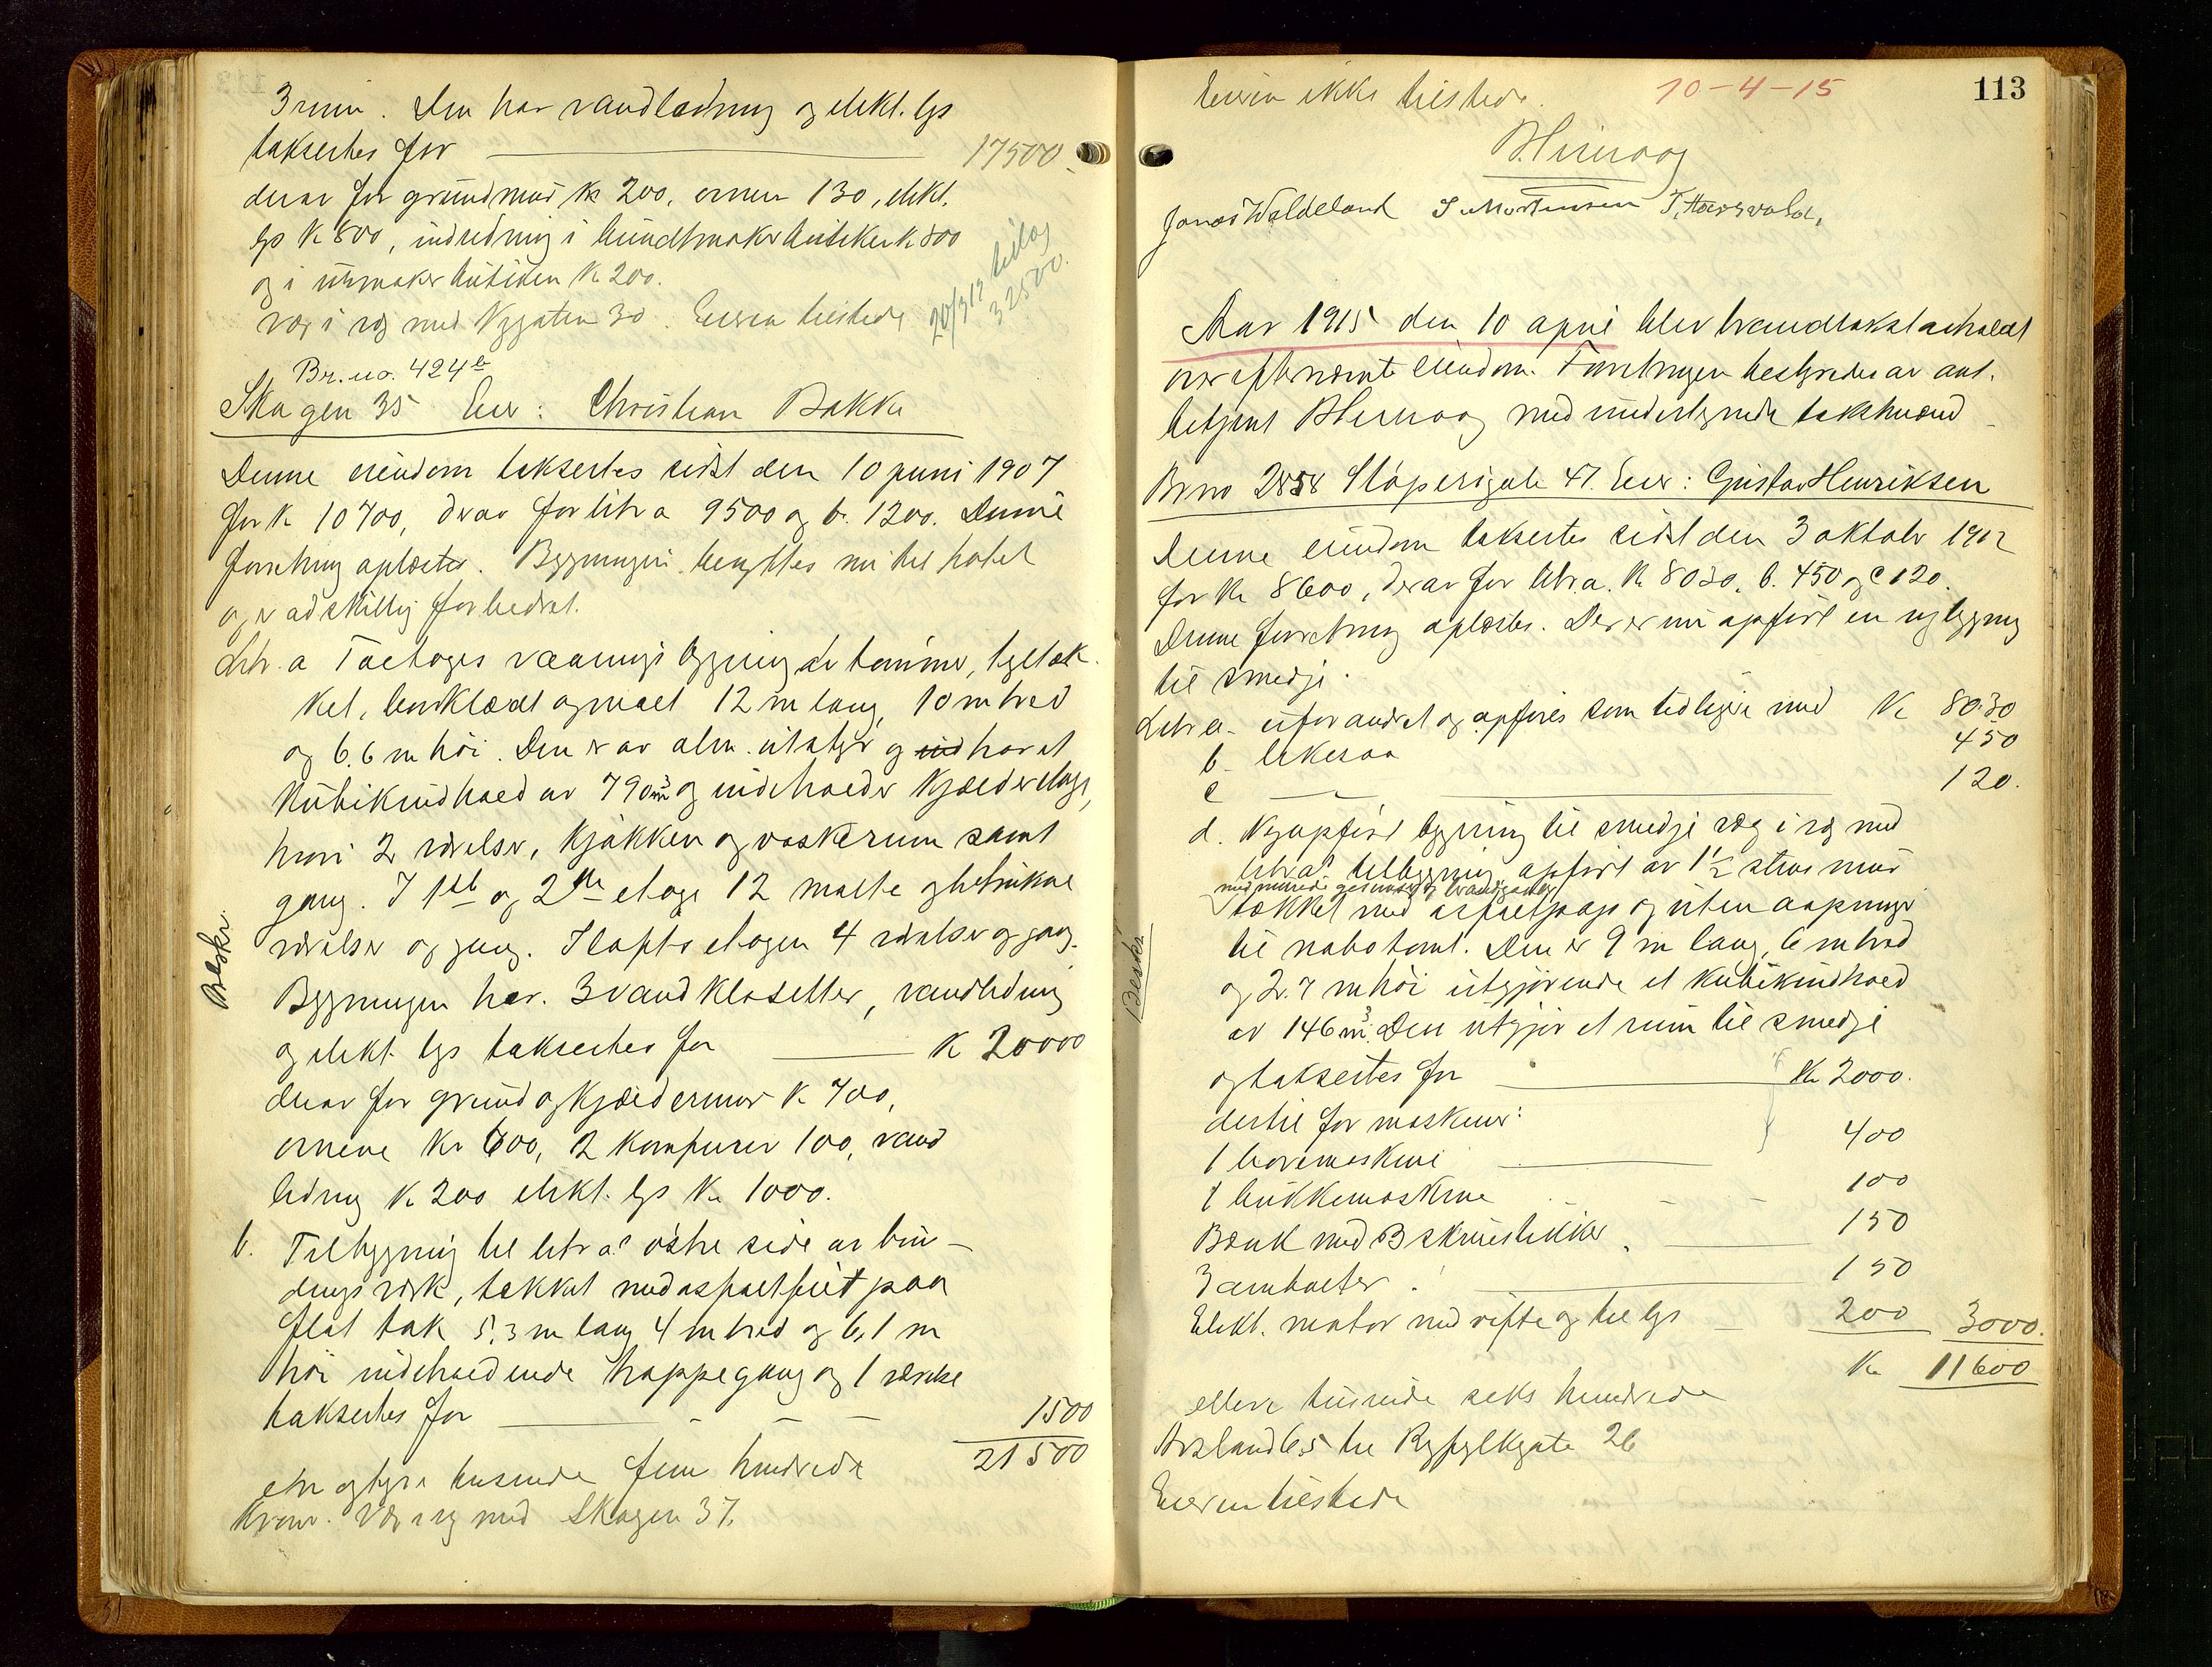 3 rum. Den har vandledning og elekt. lys
taksertes for 17500.
derav for grundmur kr 200, ovnen 130, elekt.
lys kr 800, indredning i buntmakerbutikken kr 800
og i urmakerbutiken kr 200.
væg i væg med Nygaten 30. Eieren tilstede
20/3 19 tillæg
32500.
Br. no. 424b
Skagen 35 Eier: Christian Bakke
Denne eiendom taksertes sidst den 10 juni 1907
for kr 10700, derav for litr a 9500 og b. 1200. Denne
forretning oplæstes. Bygningen benyttes nu til hotel
og er adskillig forbedret.
Litr. a Toetages vaaningsbygning av tømmer, tegltæk-
ket, bordklædt og malt 12 m lang, 10 m bred
og 6.6 m høi. Den er av alm. utstyr og har et
kubikindhold av 790 m3 og indeholder kjelderetage,
hvori 2 værelser, kjøkken og vaskerum samt
gang. I 1ste og 2den etage 12 malte og betrukne
værelser og gang. I loftsetagen 4 værelser og gang.
Beskr.
Bygningen har 3 vandklosetter, vandledning
og elekt. lys taksertes for K 20000
derav for grund og kjeldermur kr 700,
ovnene kr 600, 2 komfurer 100, vand
ledning kr 200 elekt. lys kr 1000.
b. Tilbygning til litr a's østre side av bin-
dingsverk, tækket med asfaltfilt paa
flat tak 5.3 m lang 4 m bred og 6,1 m
høi indeholdende trappegang og 1 værelse
taksertes for 1500
21500
en og tyve tusende fem hundrede
kroner. Væg i væg med Skagen 37.
113
Eieren ikke tilstede. 10-4-15
Jonas Waldeland S. Mortensen
Aar 1915 den 10 april blev brandtakst avholdt
over efternævnte eiendom. Forretningen bestyredes av aut.
betjent med undertegnede takstmænd
Br no 2858 Støperigate 47. Eier: Gustav Henriksen
Denne eiendom taksertes sidst den 3 oktober 1912
for kr 8600, derav for litr. a. kr 8030, b. 450 og c 120.
Denne forretning oplæstes. Der er nu opført en ny bygning
til smedje.
Litr a. uforandret og opføres som tidligere med kr 8030
b. likesaa 450
c 120.
d. Nyopført bygning til smedje væg i væg med
litr a's tilbygning opført av 1 1/2 stens mur
med murede gesimser og brandgavler
tækket med asfaltpap og uten aapninger
til nabotomt. Den er 9 m lang, 6 m bred
og 2.7 m høi utgjørende et kubikindhold
Beskr.
av 146 m3. Den utgjør et rum til smedje
og taksertes for Kr 2000.
dertil for maskiner:
1 boremaskine 400
1 bukkemaskine 100
Bænk med 3 skruestikker 150
3 ambolter 150
Elekt. motor med vifte og til lys 200 3000.
Kr 11600
elleve tusinde seks hundrede
Avstand 6,5 til Ryfylkegate 26
Eieren tilstede